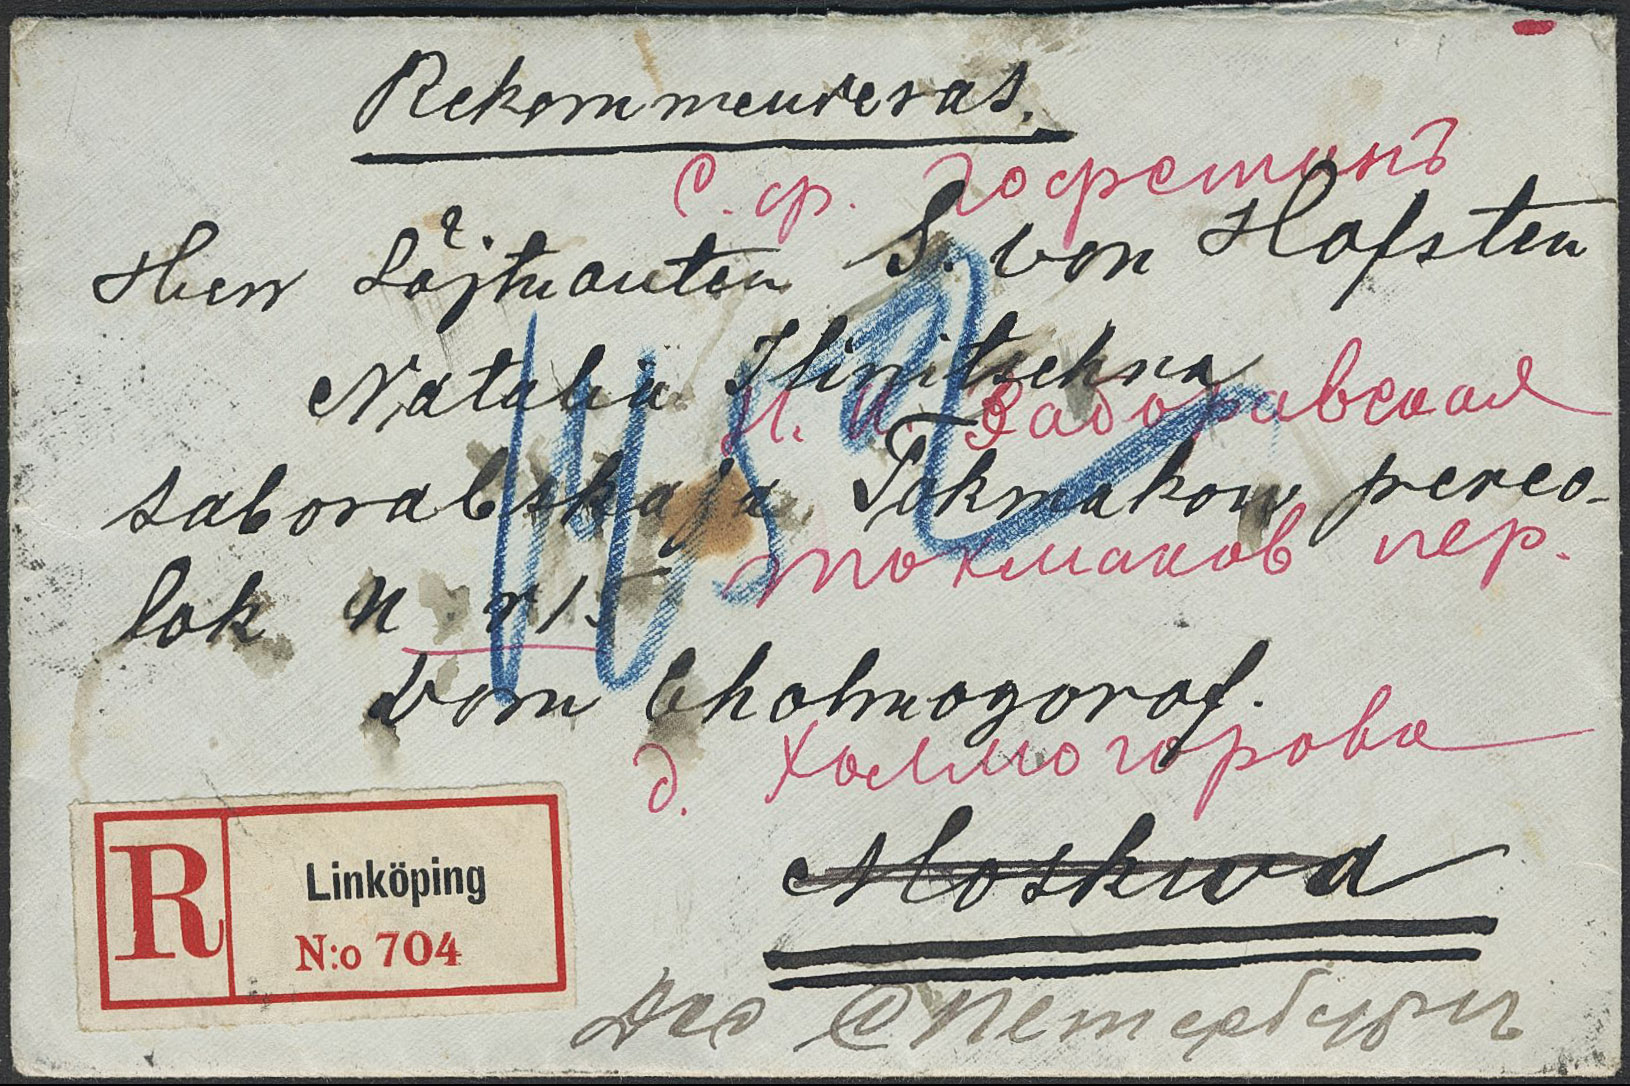 Rekommenderas.
С. ф. Гофстинъ
Herr Löjtnanten S. von Hofsten
Natalia Ilinitschna
Н. И. Заборавская
saborabskaja Tokmakow pereo-
Токмаков пер.
lok N:r 15
Dom Cholmogorof.
д. Холмогорова
Moskwa
R
Linköping
N:o 704
СПетербургъ